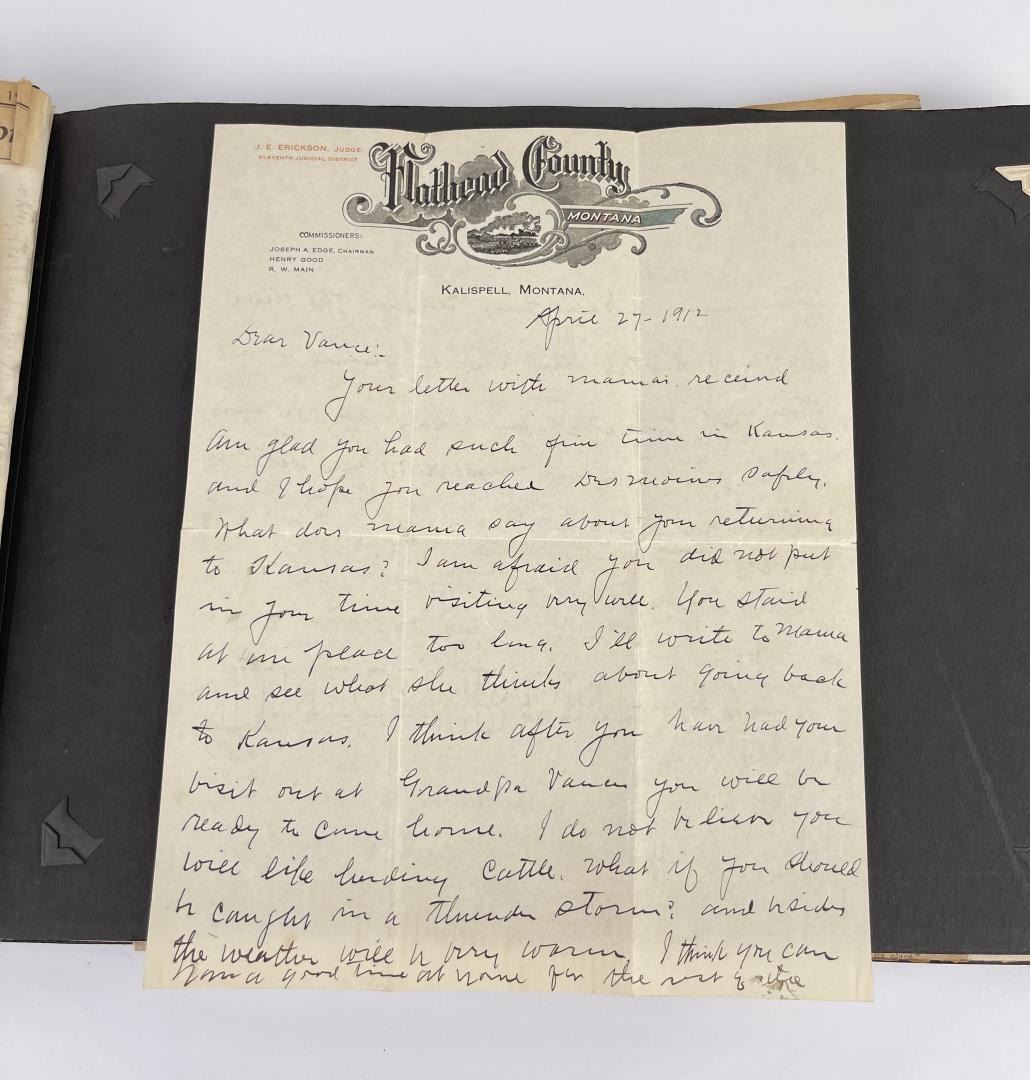 J. E. ERICKSON, JUDGE.
ELEVENTH JUDICIAL DISTRICT
Flathead County
MONTANA
COMMISSIONERS:
JOSEPH A. EDGE, CHAIRMAN
HENRY GOOD
R. W. MAIN
KALISPELL, MONTANA,
April 27-1912
Dear Vance:-
Your letter with mama's received
Am glad you had such fine time in Kansas.
and I hope you reached Des Moines safely.
What does mama say about your returning
to Kansas? I am afraid you did not put
in your time visiting very well. You staid
at one place too long. I'll write to Mama
and see what she thinks about going back
to Kansas. I think after you have had your
visit out at Grandpa Vances you will be
ready to come home. I do not believe you
will like herding cattle. What if you should
be caught in a thunder storm? and besides
the weather will be very warm. I think you can
have a good time at home for the rest of the